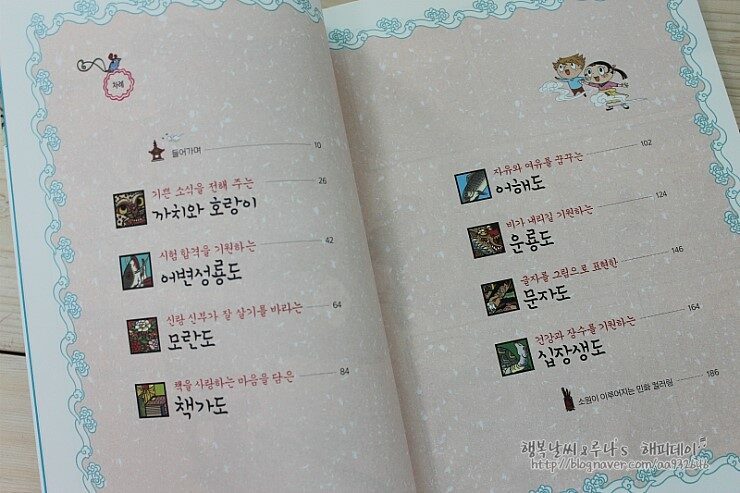 차례
들어가며 10
기쁜 소식을 전해 주는 26
까치와 호랑이
시험 합격을 기원하는 42
어변성룡도
신랑 신부가 잘 살기를 바라는 64
모란도
책을 사랑하는 마음을 담은 84
책가도
자유와 여유를 꿈꾸는 102
어해도
비가 내리길 기원하는 124
운룡도
글자를 그림으로 표현한 146
문자도
건강과 장수를 기원하는 164
십장생도
소원이 이루어지는 민화 컬러링 186
행복날씨&루나's 해피데이